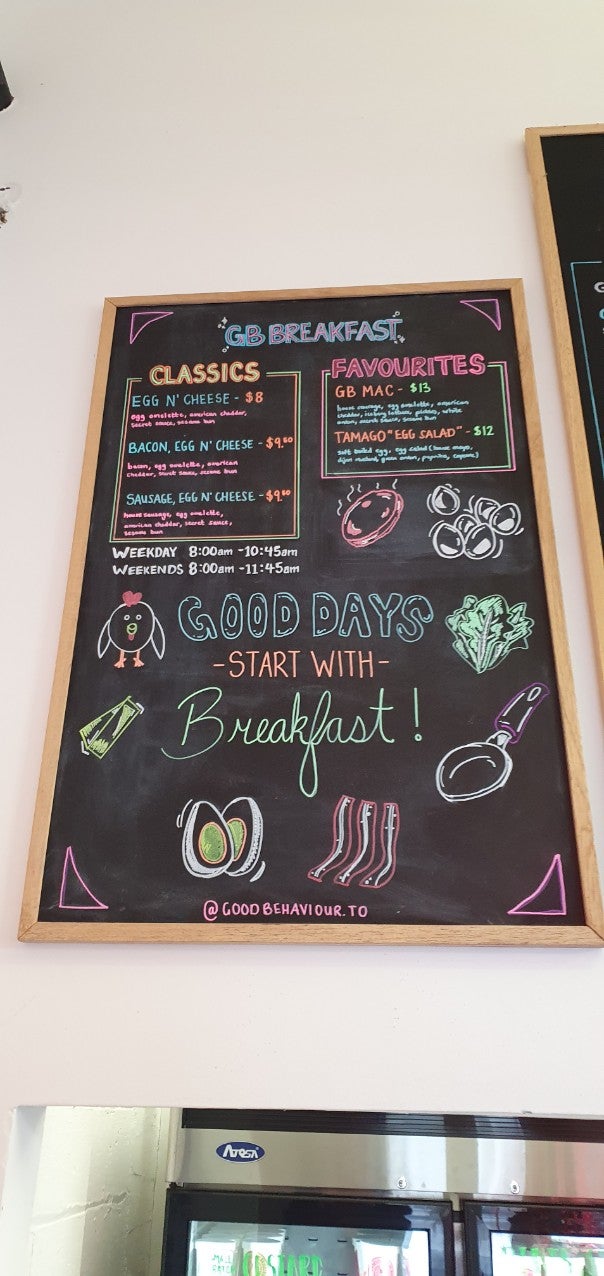 GB BREAKFAST
CLASSICS
EGG N' CHEESE - $8
egg omelette, american cheddar,
secret sauce, sesame bun
BACON, EGG N' CHEESE - $9.50
bacon, egg omelette, american
cheddar, secret sauce, sesame bun
SAUSAGE, EGG N' CHEESE - $9.50
house sausage, egg omelette,
american cheddar, secret sauce,
sesame bun
FAVOURITES
GB MAC - $13
house sausage, egg omelette, american
cheddar, iceberg lettuce, pickles, white
onion, secret sauce, sesame bun
TAMAGO "EGG SALAD" - $12
soft boiled egg, egg salad (house mayo,
dijon mustard, green onion, paprika, cayenne)
WEEKDAY 8:00am - 10:45am
WEEKENDS 8:00am - 11:45am
GOOD DAYS
- START WITH -
Breakfast!
@GOODBEHAVIOUR.TO
Atosa
CUSTARD